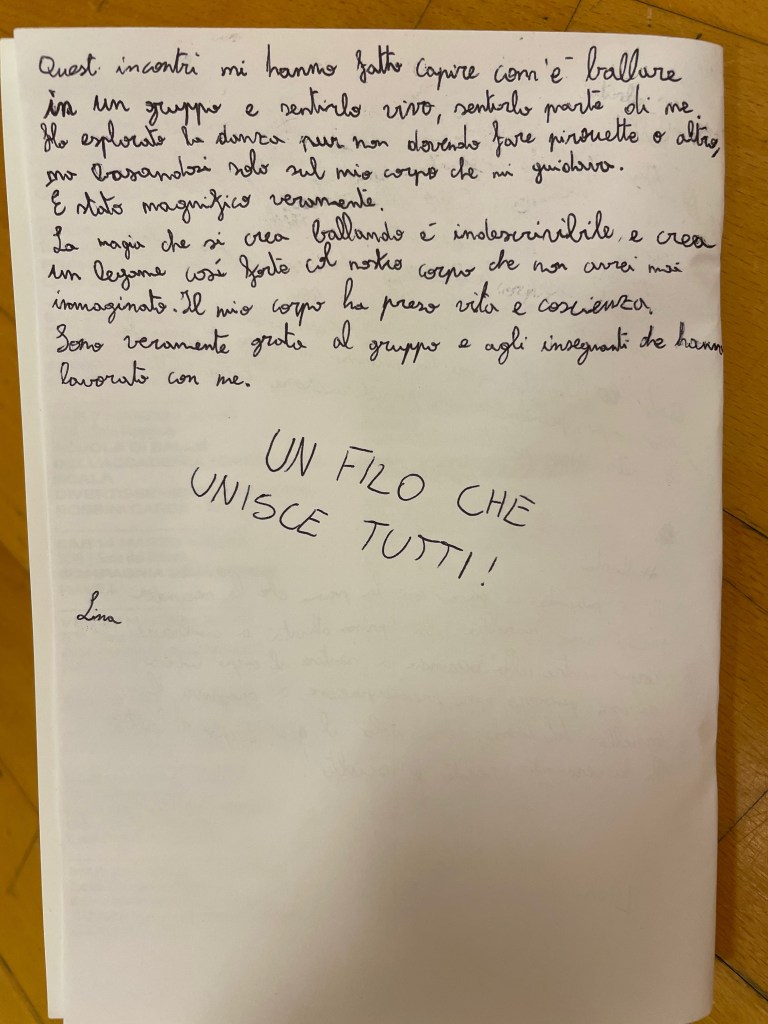 Questi incontri mi hanno fatto capire com'è ballare
in un gruppo e sentirlo vivo, sentirlo parte di me.
Ho esplorato la danza pur non dovendo fare pirouette o altro,
ma basandosi solo sul mio corpo che mi guidava.
È stato magnifico veramente.
La magia che si crea ballando è indescrivibile, e crea
un legame così forte col nostro corpo che non avrei mai
immaginato. Il mio corpo ha preso vita e coscienza.
Sono veramente grata al gruppo e agli insegnanti che hanno
lavorato con me.
UN FILO CHE
UNISCE TUTTI!
Lina